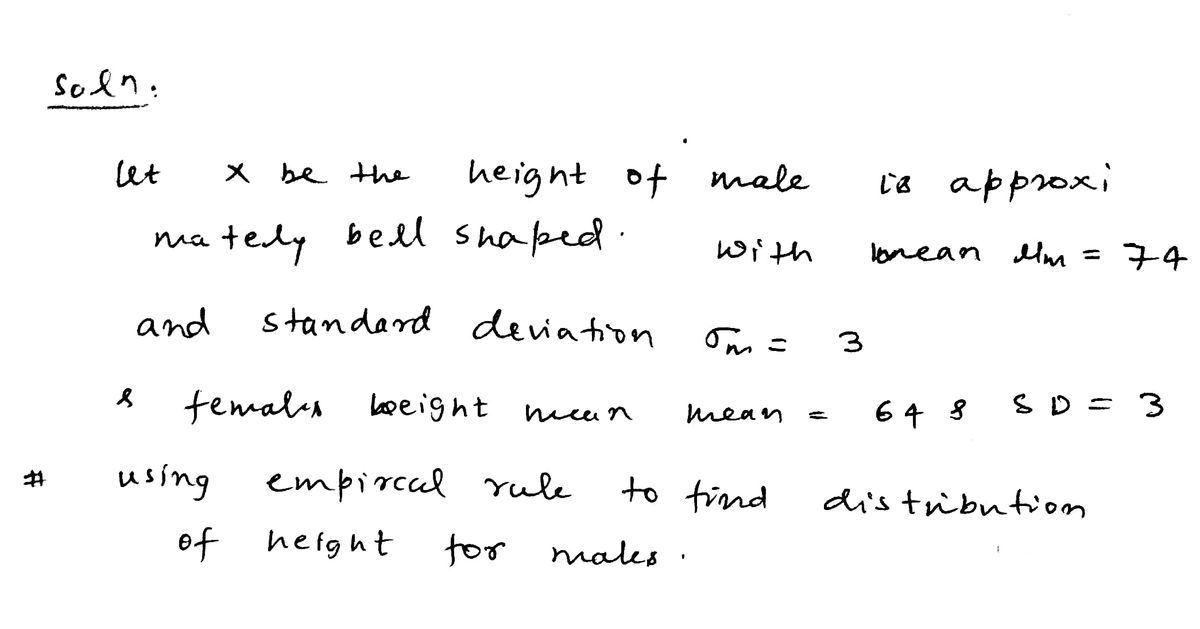 Soln:
Let x be the height of male is approxi
mately bell shaped. with mean μm = 74
and standard deviation σm = 3
& females height mean mean = 64 & SD = 3
# using empircal rule to find distribution
of height for males.